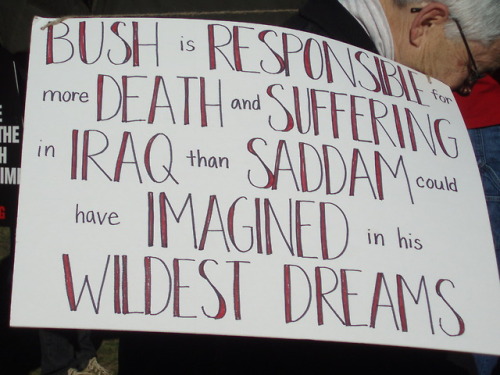 BUSH is RESPONSIBLE for
more DEATH and SUFFERING
in IRAQ than SADDAM could
have IMAGINED in his
WILDEST DREAMS
THE